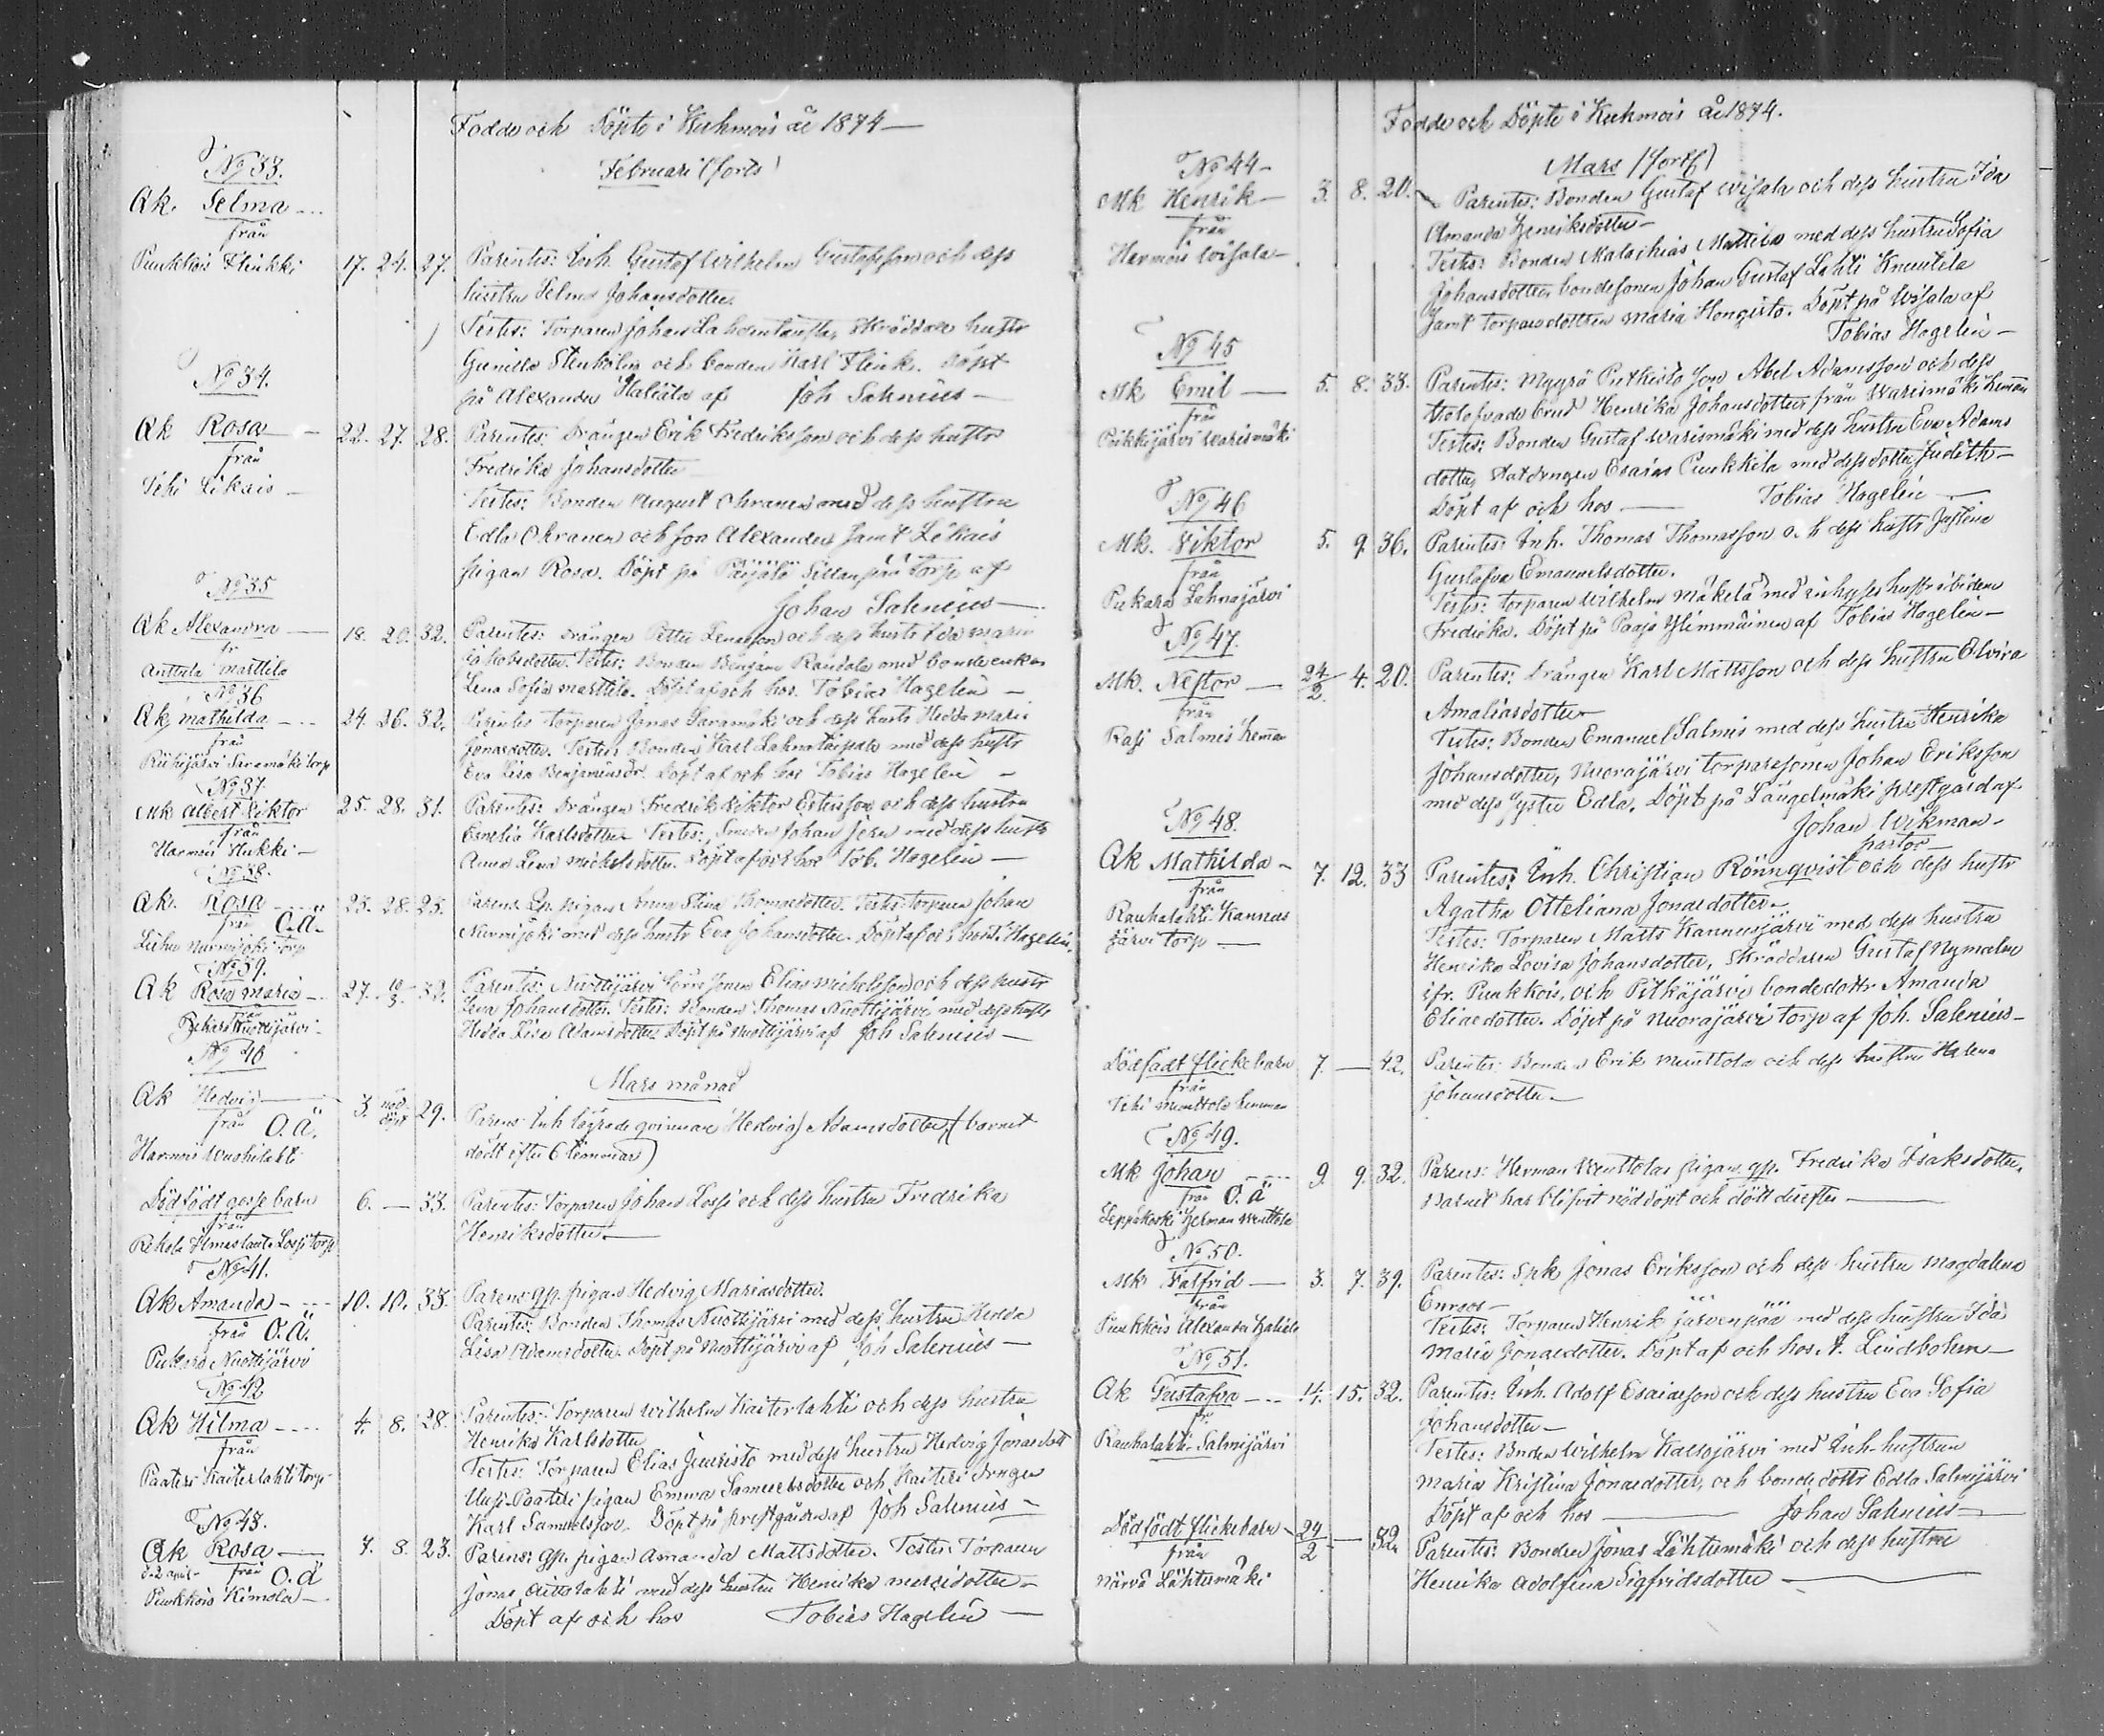 Födde och Döpte i Kuhmois år 1874
Februari (forts)
No 33.
Qk. Selma
från
Puukkois Flinkki
17. 24. 27.
Parentes: Inh. Gustaf Wilhelm Gustafsson och dess
hustru Selma Johansdotter.
Testes: Torparen Johan skräddare hustr
Gunilla Stenholm och bonden Karl Flink. Döpt
på Alexander Haliala af Joh Salenius
No 34.
Qk Rosa
från
Tehi Likais
22. 27. 28.
Parentes: Drängen Erik Fredriksson och dess hustr
Fredrika Johansdotter
Testes: Bonden August Ohranen med dess hustru
Edla Ohranen och son Alexander samt Likais
pigan Rosa. Döpt på Päijälä Sillanpää torp af
Johan Salenius
No 35
Qk Alexandra
fr
Anttula Marttila
18. 20. 32.
Parentes: Drängen Petter och dess hustr Ida Maria
Jakobsdotter. Testes: Bonden Benjam Raudala med bondeenkan
Lena Sofia Marttila. Döpt af och hos. Tobias Hagelin
No 36
Qk Mathilda
från
Riihijärvi Saramäki torp
24. 26. 32.
Parentes Torparen Jonas Saramäki och dess hustr Hedda Maria
Jonasdotter. Testes Bonden Karl med dess hustr
Eva Lisa Benjaminsdr. Döpt af och hos Tobias Hagelin
No 37.
Mk Albert Viktor
från
Harmois Hukki
25. 28. 31.
Parentes: Drängen Fredrik Viktor och dess hustru
Karlsdotter Testes: Smeden Johan Jern med dess hustr
Anna Lena Michelsdotter. Döpt af och hos Tob. Hagelin
No 38.
Qk. Rosa
från O.Ä.
Nurmijoki torp
23. 28. 25.
Parens Qp. pigan Anna Stina Thomasdotter. Testes torparen Johan
Nurmijoki med dess hustr Eva Johansdotter. Döpt af och hos Hagelin.
No 39.
Qk Rosa Maria
från
Pukara Nuottijärvi
27. 10/3. 32.
Parentes: Nuottijärvi Elias Michelsson och dess hustr
Lena Johansdotter. Testes: Bonden Thomas Nuottijärvi med dess hustr
Hedda Lisa Adamsdotter. Döpt på Nuottijärvi af Joh Salenius
No 40
Qk Hedvig
från O.Ä.
Harmois Wuohilahti
Mars månad
3. nöd döpt 29.
Parens Inh lägrade qvinnan Hedvig Adamsdotter. (barnet
dödt efter 6 timmar)
Dödfödt gosse barn
från
Lossi torp
6. — 33.
Parentes: Torparen Johan Lossi och dess hustru Fredrika
Henriksdotter
No 41.
Qk Amanda
från O.Ä.
Pukara Nuottijärvi
10. 10. 33.
Parens qp. pigan Hedvig Mariasdotter.
Parentes: Bonden Thomas Nuottijärvi med dess hustru Hedda
Lisa Adamsdotter. Döpt på Nuottijärvi af Joh Salenius
No 42
Qk Hilma
från
Paateri Kaiterlahti torp
4. 8. 28.
Parentes: Torparen Wilhelm Kaiterlahti och dess hustru
Henrika Karlsdotter
Testes: Torparen Elias Juuristo med dess hustru Hedvig Jonasdott
Uusi-Paateri pigan Emma Samuelsdotter och Kaiteri drngen
Karl Samuelsson. Döpt på prestgården af Joh Salenius
No 43.
Qk Rosa
d. 2 april
från O.Ä
Puukkois Kimola
7. 8. 23.
Parens: qp. pigan Amanda Mattsdotter. Testes: Torparen
Jonas med dess hustru Henrika
Döpt af och hos Tobias Hagelin
Födde och Döpte i Kuhmois år 1874.
Mars (forts)
No 44
Mk Henrik
från
Harmois Wihala
3. 8. 20.
Parentes: Bonden Gustaf Wihala och dess hustru Ida
Amanda Henriksdotter
Testes: Bonden Malachias Mattila med dess hustru Sofia
Johansdotter, bondesonen Johan Gustaf Lahti Knuutila
samt torparedottren Maria Hongisto. Döpt på Wihala af
Tobias Hagelin
No 45
Mk Emil
från
Pihkijärvi Warismäki
5. 8. 33.
Parentes: Myyrä son Abel Adamsson och dess
trolofvade brud Henrika Johansdotter från Warismäki heman
Testes: Bonden Gustaf Warismäki med dess hustru Eva Adams
dotter, statdrngen Esaias Puukkila med dess dotter Judith
Döpt af och hos Tobias Hagelin
No 46
Mk. Viktor
från
Pukara Lahnajärvi
5. 9. 36.
Parentes: Inh. Thomas Thomasson och dess hustr Justina
Gustafva Emanuelsdotter.
Testes: torparen Wilhelm Mäkelä med inhyses hustr ibidem
Fredrika. Döpt på Paaso Ylimmäinen af Tobias Hagelin
No 47.
Mk. Nestor
från
Rasi Salmis heman
24/2. 4. 20.
Parentes: Drängen Karl Mattsson och dess hustru Elvira
Amaliasdotter
Testes: Bonden Emanuel Salmis med dess hustru Henrika
Johansdotter, Nuorajärvi torparesonen Johan Eriksson
med dess syster Edla. Döpt på Längelmäki prestgård af
Johan Wikman
pastor
No 48.
Qk Mathilda
från
Rauhalahti Kannus
järvi torp
7. 12. 33
Parentes: Inh. Christian Rönnqvist och dess hustr
Agatha Otteliana Jonasdotter
Testes: Torparen Matts Kannusjärvi med dess hustru
Henrika Lovisa Johansdotter, skräddaren Gustaf Nymalm
ifr. Puukkois, och Pitkäjärvi bondedottr Amanda
Eliasdotter. Döpt på Nuorajärvi torp af Joh. Salenius
Dödfödt flickebarn
från
Tehi Muuttola hemman
7. — 42.
Parentes: Bonden Erik Muuttola och dess hustru Helena
Johansdotter
No 49.
Mk Johan
från O.Ä
Leppäkoski Herman Wenttola
9. 9. 32.
Parens: Herman Wenttolas pigan qp. Fredrika Isaksdotter.
Barnet har blifvit nöddöpt och dödt derefter
No 50.
Mk. Falfrid
från
Puukkois Alexander Haliala
3. 7. 39.
Parentes: Spk Jonas Eriksson och dess hustru Magdalena
Enroos
Testes: Torparen Henrik Järvenpää med dess hustru Ida
Maria Jonasdotter. Döpt af och hos A. Lindbohm
No 51.
Qk Gustafva
fr.
Rauhalahti Salmijärvi
14. 15. 32.
Parentes: Inh. Adolf Esaiasson och dess hustru Eva Sofia
Johansdotter
Testes: Bnden Wilhelm Kalhojärvi med Inh-hustrun
Maria Kristina Jonasdotter, och bondedottr Edla Salmijärvi
Döpt af och hos Johan Salenius
Dödfödt flickebarn
från
Närvä Lähtemäki
24/2 — 32.
Parentes: Bonden Jonas Lähtemäki och dess hustru
Henrika Adolfina Sigfridsdotter